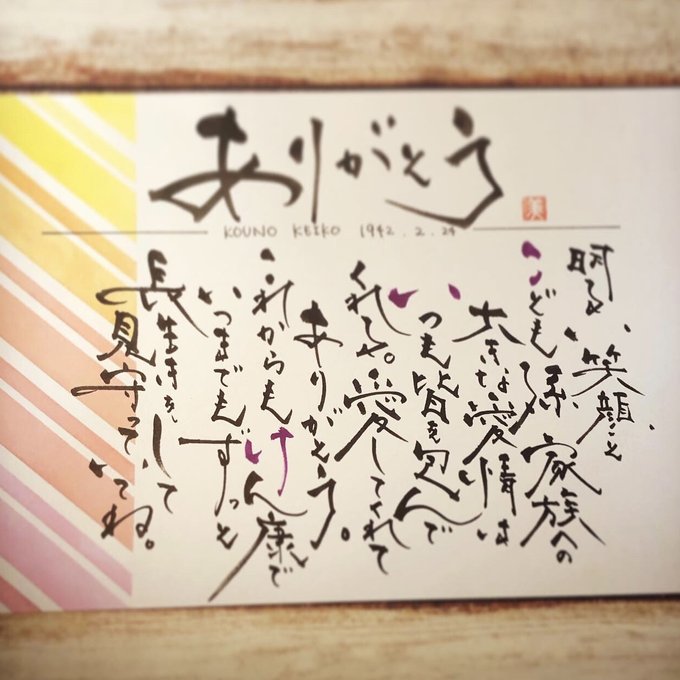 ありがとう
美
KOUNO KEIKO 1942.2.24
明るい笑顔と
こども孫家族への
大きな愛情は
いつも皆を包んで
くれる。愛してくれて
ありがとう。
これからもけん康で
いつまでもずっと
長生きをして
見守っていてね。